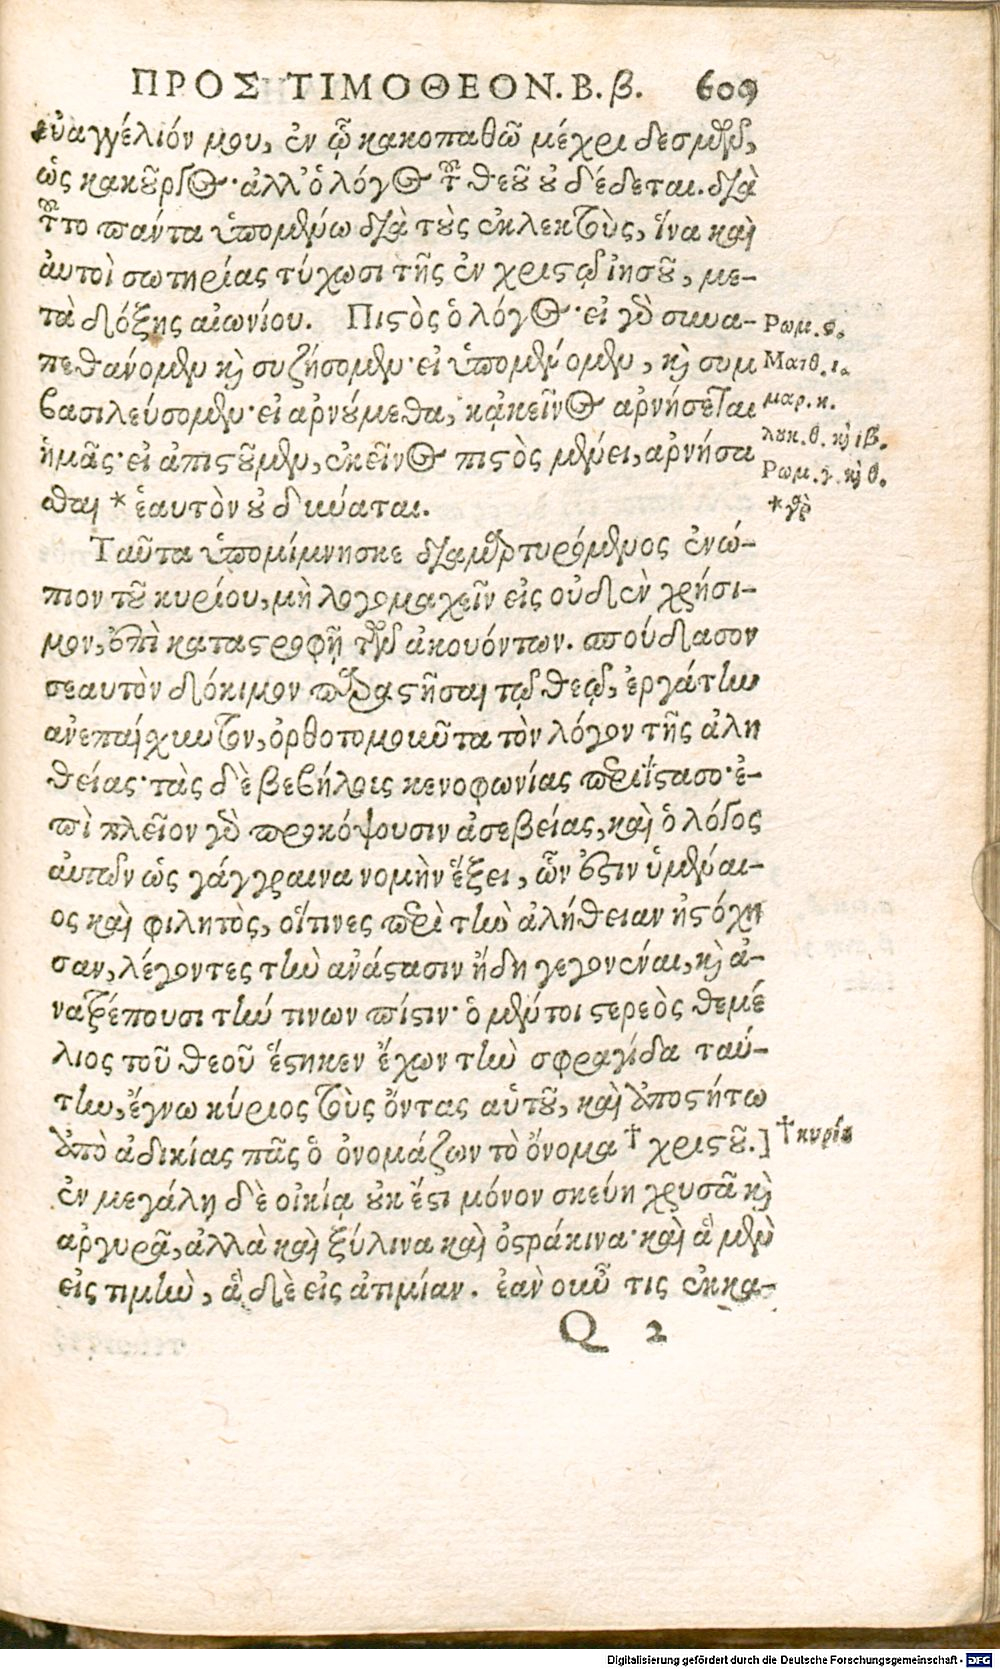 ΠΡΟΣ ΤΙΜΟΘΕΟΝ. Β. β. 609
εὐαγγέλιόν μου, ἐν ᾧ κακοπαθῶ μέχρι δεσμῶν,
ὡς κακοῦργος· ἀλλ' ὁ λόγος τοῦ θεοῦ οὐ δέδεται. διὰ
τοῦτο πάντα ὑπομένω διὰ τοὺς ἐκλεκτοὺς, ἵνα καὶ
αὐτοὶ σωτηρίας τύχωσι τῆς ἐν χριστῷ ἰησοῦ, με-
τὰ δόξης αἰωνίου. Πιστὸς ὁ λόγος· εἰ γὰρ συνα-
πεθάνομεν καὶ συζήσομεν· εἰ ὑπομένομεν, καὶ συμ
βασιλεύσομεν· εἰ ἀρνούμεθα, κἀκεῖνος ἀρνήσεται
ἡμᾶς· εἰ ἀπιστοῦμεν, ἐκεῖνος πιστὸς μένει, ἀρνήσα
σθαι * ἑαυτὸν οὐ δύναται.
Ταῦτα ὑπομίμνησκε διαμαρτυρόμενος ἐνώ-
πιον τοῦ κυρίου, μὴ λογομαχεῖν εἰς οὐδὲν χρήσι-
μον, ἐπὶ καταστροφῇ τῶν ἀκουόντων. σπούδασον
σεαυτὸν δόκιμον παραστῆσαι τῷ θεῷ, ἐργάτην
ἀνεπαίσχυντον, ὀρθοτομοῦντα τὸν λόγον τῆς ἀλη
θείας· τὰς δὲ βεβήλοις κενοφωνίας περιΐστασο· ἐ-
πὶ πλεῖον γὰρ προκόψουσιν ἀσεβείας, καὶ ὁ λόγος
αὐτῶν ὡς γάγγραινα νομὴν ἕξει, ὧν ἐστιν ὑμέναι-
ος καὶ φιλητὸς, οἵτινες περὶ τὴν ἀλήθειαν ἠστόχη
σαν, λέγοντες τὴν ἀνάστασιν ἤδη γεγονέναι, καὶ ἀ-
νατρέπουσι τήν τινων πίστιν· ὁ μέντοι στερεὸς θεμέ
λιος τοῦ θεοῦ ἕστηκεν ἔχων τὴν σφραγίδα ταύ-
την, ἔγνω κύριος τοὺς ὄντας αὑτοῦ, καὶ ἀποστήτω
ἀπὸ ἀδικίας πᾶς ὁ ὀνομάζων τὸ ὄνομα † χριστοῦ.]
ἐν μεγάλῃ δὲ οἰκίᾳ οὐκ ἔστι μόνον σκεύη χρυσᾶ καὶ
ἀργυρᾶ, ἀλλὰ καὶ ξύλινα καὶ ὀστράκινα· καὶ ἃ μὲν
εἰς τιμὴν, ἃ δὲ εἰς ἀτιμίαν. ἐὰν οὖν τις ἐκκα-
Q 2
Ρωμ. ϛ.
Ματθ. ι.
μαρ. κ.
λουκ. θ. καὶ ιβ.
Ρωμ. γ. καὶ θ.
* γὰρ
† κυρίου
Digitalisierung gefördert durch die Deutsche Forschungsgemeinschaft - DFG